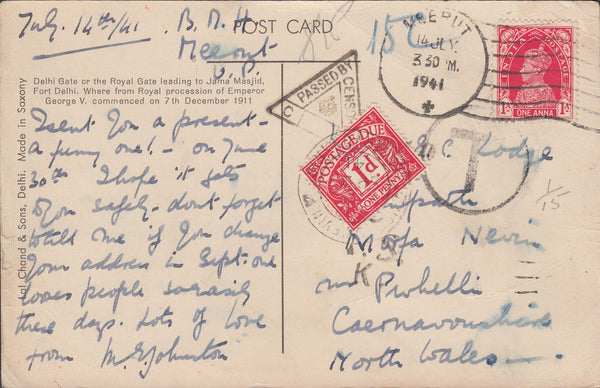 POST CARD
July 14th/41
B.M.H.
Meerut
U.P.
15 C
Delhi Gate or the Royal Gate leading to Jama Masjid,
Fort Delhi. Where from Royal procession of Emperor
George V. commenced on 7th December 1911
Lal Chand & Sons, Delhi. Made in Saxony
I sent you a present -
a funny one! - on June
30th I hope it gets
to you safely - dont forget
to tell me if you change
your address in Sept: one
loses people so easily
these days. Lots of love
from M.E. Johnston
MEERUT
14 JLY.
3 30 PM.
1941
INDIA POSTAGE
1A
ONE ANNA
PASSED BY
CENSOR
POSTAGE DUE
1d
ONE PENNY
T
1/15
Lodge
Morfa Nevin
nr Pwhelli
Caernarvonshire
North Wales